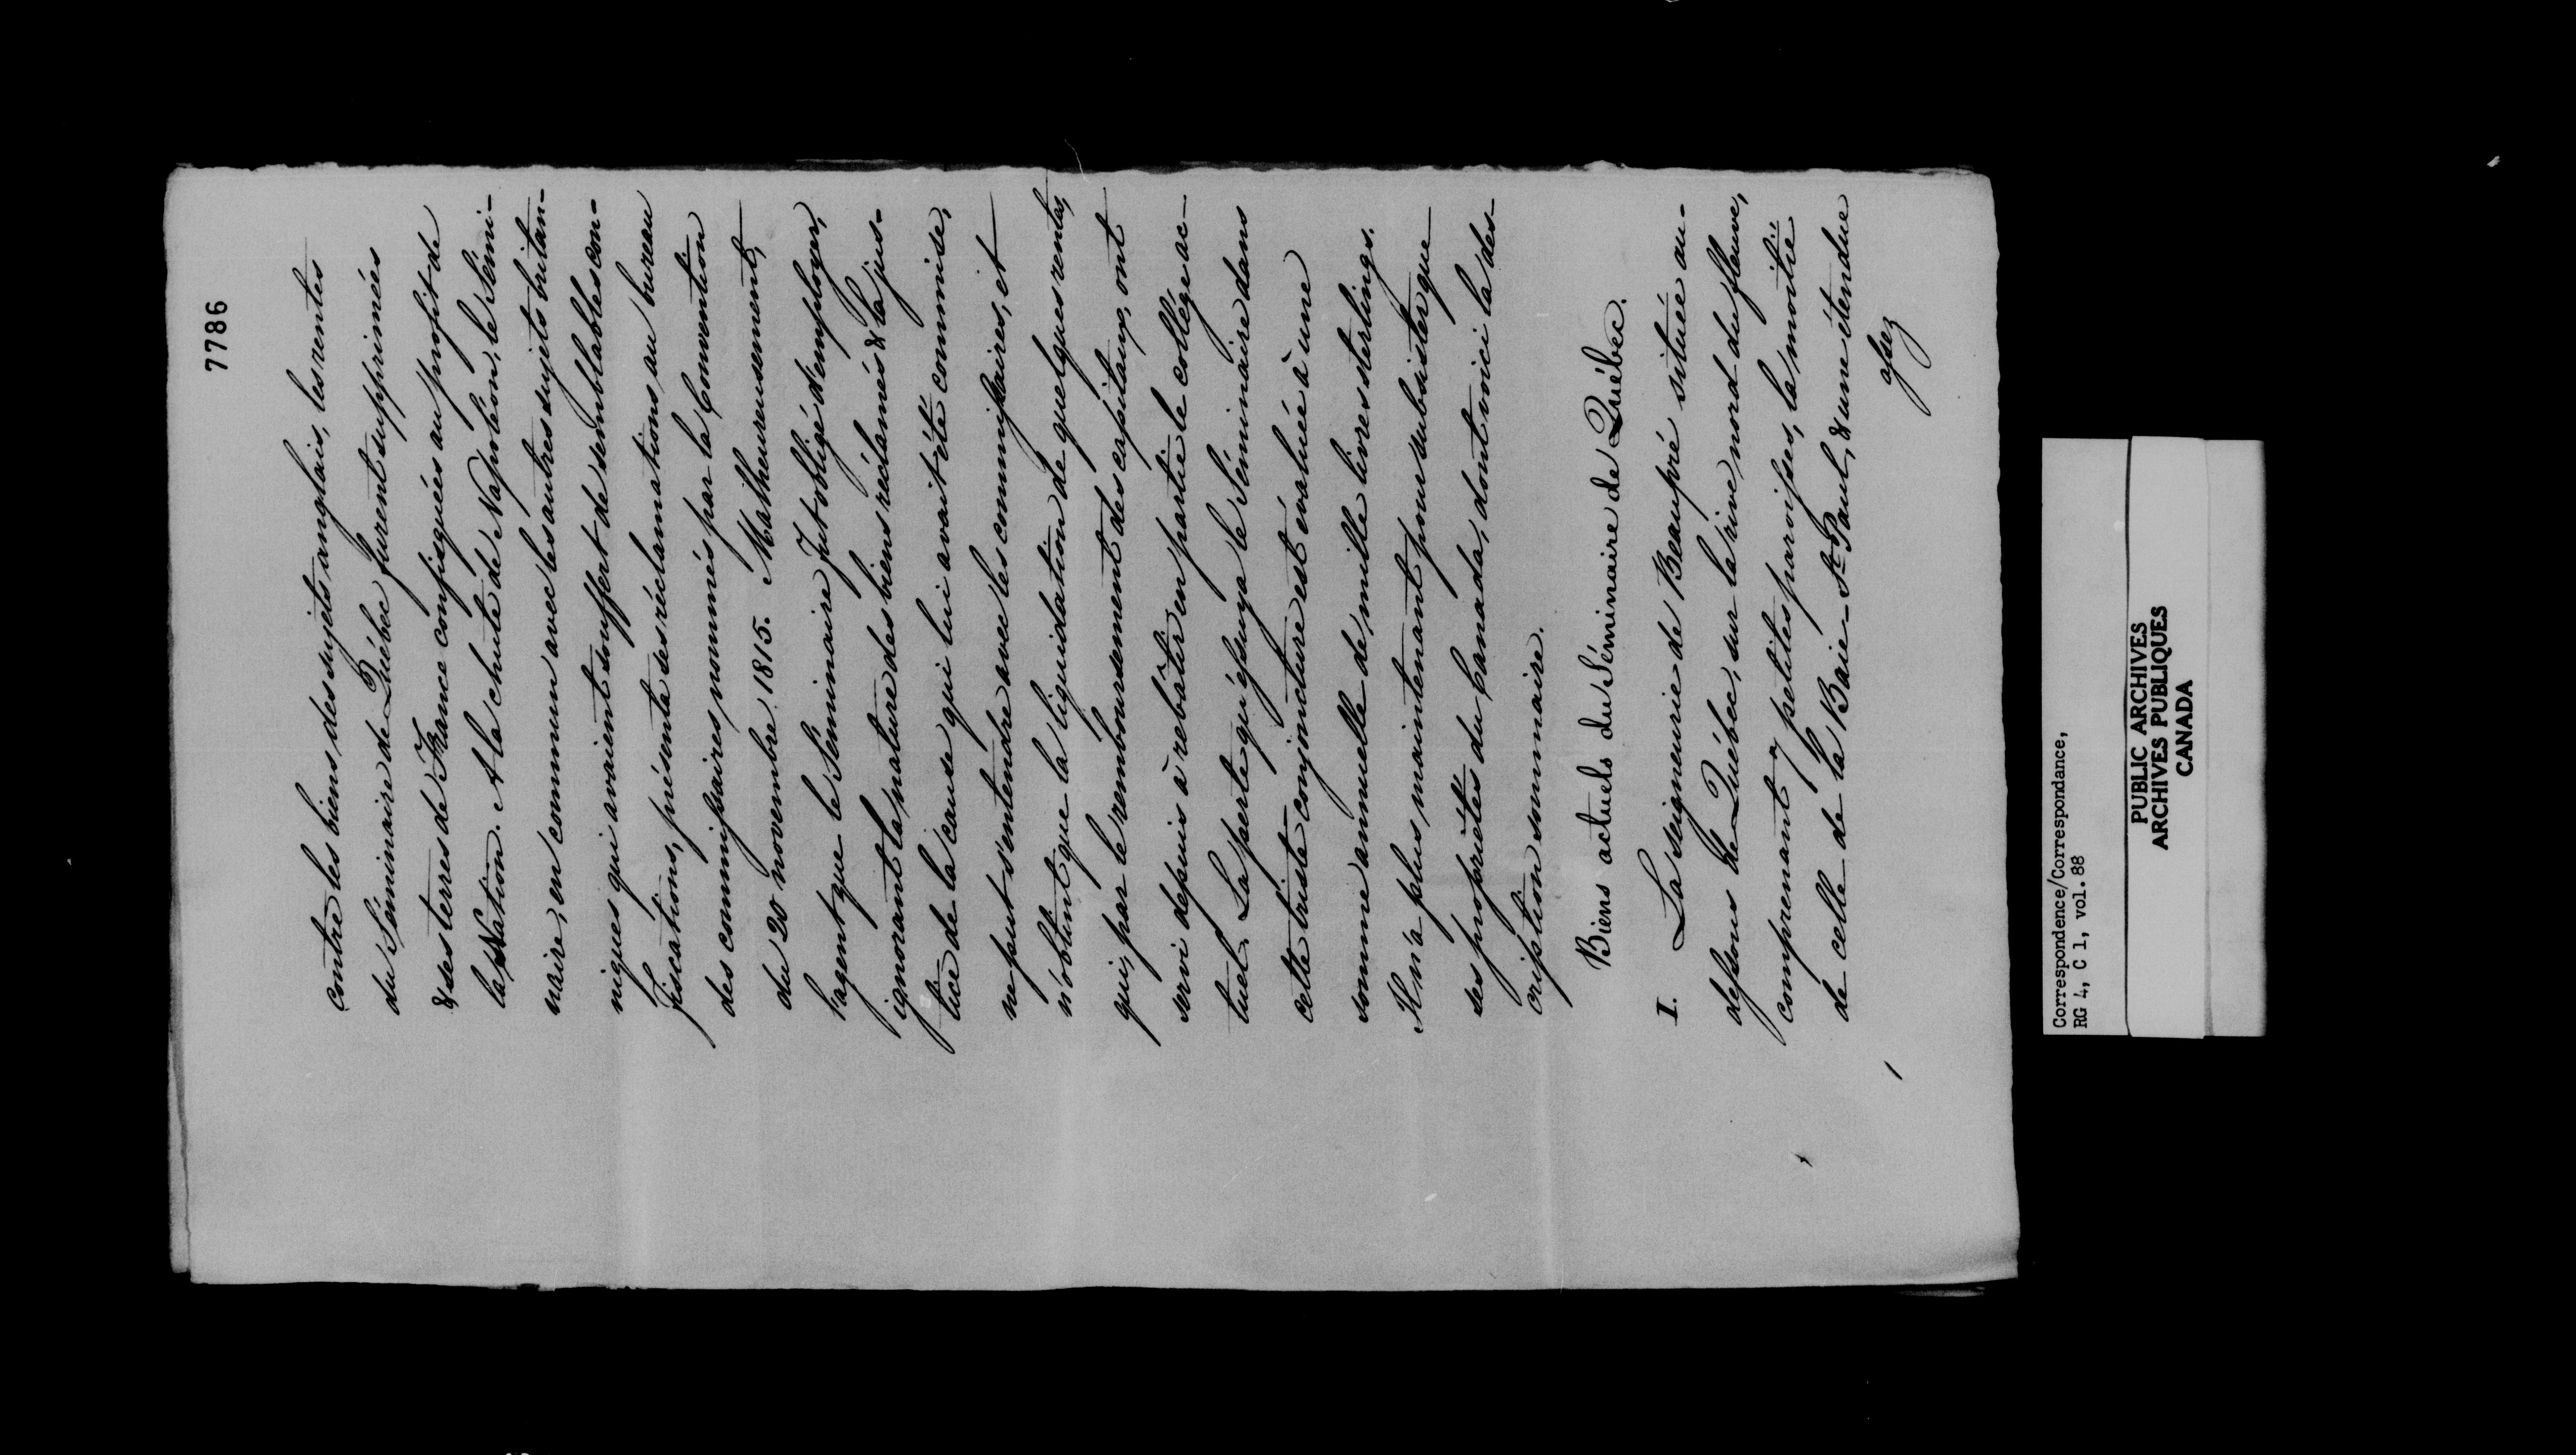 7786
contre les biens des sujets anglais, les rentes
du Séminaire de Québec furent supprimées
& ses terres de France confisquées au profit de
la Nation. A la chute de Napoléon, le Sémi-
naire, en commun avec les autres sujets britan-
niques qui avaient souffert de semblables con-
fiscations, présenta ses réclamations au bureau
des commissaires nommés par la Convention
du 20 novembre 1815. Malheureusement,
l'agent que le Séminaire fut obligé d'employer,
ignorant la nature des biens réclamés & la jus-
tice de la cause qui lui avait été commise,
ne put s'entendre avec les commissaires, et
n'obtint que la liquidation de quelques rentes,
qui, par le remboursement des capitaux, ont
servi depuis à rebâtir en partie le collège ac-
tuel. La perte qu'essuya le Séminaire dans
cette triste conjoncture est évaluée à une
somme annuelle de mille livres sterlings.
Il n'a plus maintenant pour subsister que
ses propriétés du Canada, dont voici la des-
cription sommaire.
Biens actuels du Séminaire de Québec.
I. La seigneurie de Beaupré située au-
dessous de Québec, sur la rive nord du fleuve,
comprenant 7 petites paroisses, la moitié
de celle de la Baie-St-Paul, & une étendue
assez
Correspondence/Correspondance,
RG 4, C 1, vol. 88
PUBLIC ARCHIVES
ARCHIVES PUBLIQUES
CANADA